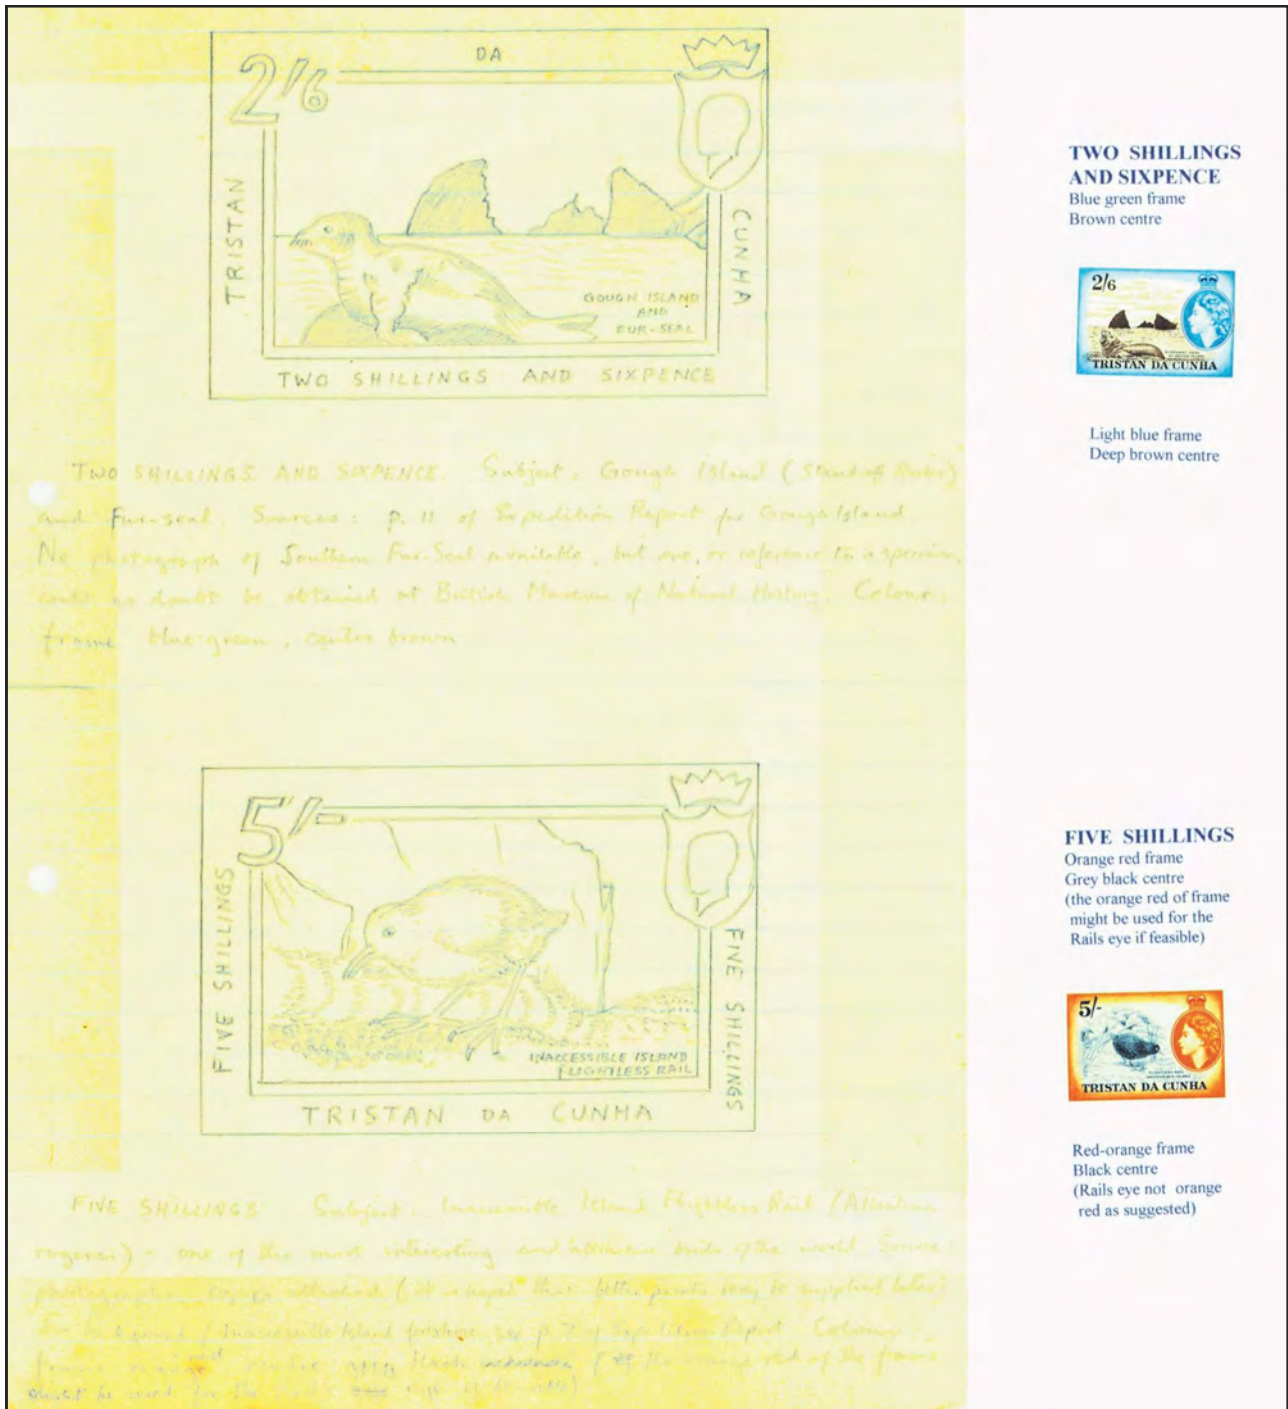 2/6
DA
TRISTAN
CUNHA
GOUGH ISLAND
AND
FUR-SEAL
TWO SHILLINGS AND SIXPENCE
TWO SHILLINGS AND SIXPENCE. Subject. Gough Island (Stand-off
and Fur-seal. Sources: p. 11 of Expedition Report for Gough Island
No photograph of Southern Fur-Seal available, but one, or reference to a specimen,
could no doubt be obtained at British Museum of Natural History. Colour:
frame blue-green, centre brown
5/-
FIVE SHILLINGS
FIVE SHILLINGS
INACCESSIBLE ISLAND
FLIGHTLESS RAIL
TRISTAN DA CUNHA
FIVE SHILLINGS Subject. Inaccessible Island Flightless Rail
- one of the most interesting and attractive birds of the world
attached (it is hoped that better prints may be supplied later)
Inaccessible Island see p. 7 of Expedition Report. Colour
frame orange red black (the orange red of the frame
might be used for the
TWO SHILLINGS
AND SIXPENCE
Blue green frame
Brown centre
2/6
TRISTAN DA CUNHA
Light blue frame
Deep brown centre
FIVE SHILLINGS
Orange red frame
Grey black centre
(the orange red of frame
might be used for the
Rails eye if feasible)
5/-
TRISTAN DA CUNHA
Red-orange frame
Black centre
(Rails eye not orange
red as suggested)